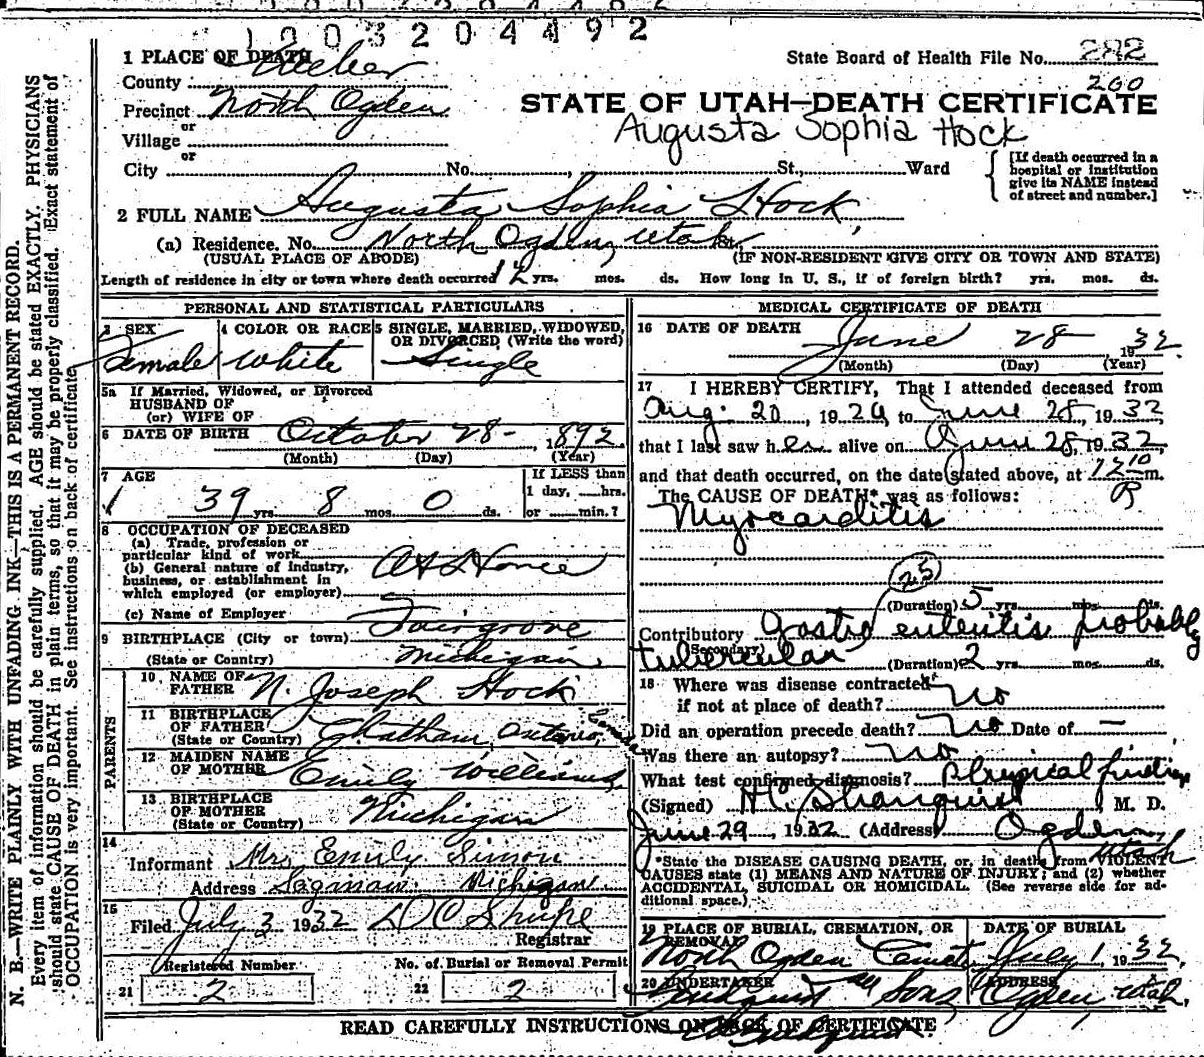 1003204492
1 PLACE OF DEATH
State Board of Health File No. 282
County Weber
260
Precinct North Ogden
STATE OF UTAH—DEATH CERTIFICATE
or
Augusta Sophia Hock
Village
or
City No. , St., Ward
[If death occurred in a hospital or institution give its NAME instead of street and number.]
2 FULL NAME Augusta Sophia Hock,
(a) Residence. No. North Ogden, Utah,
(USUAL PLACE OF ABODE) (IF NON-RESIDENT GIVE CITY OR TOWN AND STATE)
Length of residence in city or town where death occurred 12 yrs. mos. ds. How long in U. S., if of foreign birth? yrs. mos. ds.
PERSONAL AND STATISTICAL PARTICULARS
3 SEX Female
4 COLOR OR RACE White
5 SINGLE, MARRIED, WIDOWED, OR DIVORCED (Write the word) Single
5a If Married, Widowed, or Divorced
HUSBAND OF
(or) WIFE OF
6 DATE OF BIRTH October 28- 1892
(Month) (Day) (Year)
7 AGE
39 yrs. 8 mos. 0 ds.
If LESS than
1 day, hrs.
or min.?
8 OCCUPATION OF DECEASED
(a) Trade, profession or
particular kind of work
(b) General nature of industry, At Home
business, or establishment in
which employed (or employer)
(c) Name of Employer
9 BIRTHPLACE (City or town) Fairgrove
(State or Country) Michigan
PARENTS
10 NAME OF FATHER N. Joseph Hock
11 BIRTHPLACE OF FATHER (State or Country) Chatham, Ontario, Canada
12 MAIDEN NAME OF MOTHER Emily Williams
13 BIRTHPLACE OF MOTHER (State or Country) Michigan
14
Informant Mrs Emily Simon
Address Saginaw Michigan
15
Filed July 3 1932 D C Shupe
Registrar
Registered Number No. of Burial or Removal Permit
21 2 22 2
MEDICAL CERTIFICATE OF DEATH
16 DATE OF DEATH June 28 1932
(Month) (Day) (Year)
17 I HEREBY CERTIFY, That I attended deceased from
Aug. 20, 1926, to June 28, 1932,
that I last saw her alive on June 28, 1932,
and that death occurred, on the date stated above, at 12 10 m.
P
The CAUSE OF DEATH* was as follows:
Myocarditis
25
(Duration) 5 yrs. mos. ds.
Contributory Gastro enteritis probably
(Secondary)
tubercular (Duration) 2 yrs. mos. ds.
18 Where was disease contracted
if not at place of death? no
Did an operation precede death? No Date of —
Was there an autopsy? no
What test confirmed diagnosis? Physical findings
(Signed) M. D.
June 29, 1932 (Address) Ogden,
Utah
*State the DISEASE CAUSING DEATH, or, in deaths from VIOLENT
CAUSES state (1) MEANS AND NATURE OF INJURY; and (2) whether
ACCIDENTAL, SUICIDAL OR HOMICIDAL. (See reverse side for ad-
ditional space.)
19 PLACE OF BURIAL, CREMATION, OR REMOVAL DATE OF BURIAL
North Ogden Cemet. July 1, 1932
20 UNDERTAKER ADDRESS
Lindquist & Sons Ogden, Utah.
READ CAREFULLY INSTRUCTIONS ON BACK OF CERTIFICATE
N. B.—WRITE PLAINLY WITH UNFADING INK—THIS IS A PERMANENT RECORD.
Every item of information should be carefully supplied. AGE should be stated EXACTLY. PHYSICIANS
should state CAUSE OF DEATH in plain terms, so that it may be properly classified. Exact statement of
OCCUPATION is very important. See instructions on back of certificate